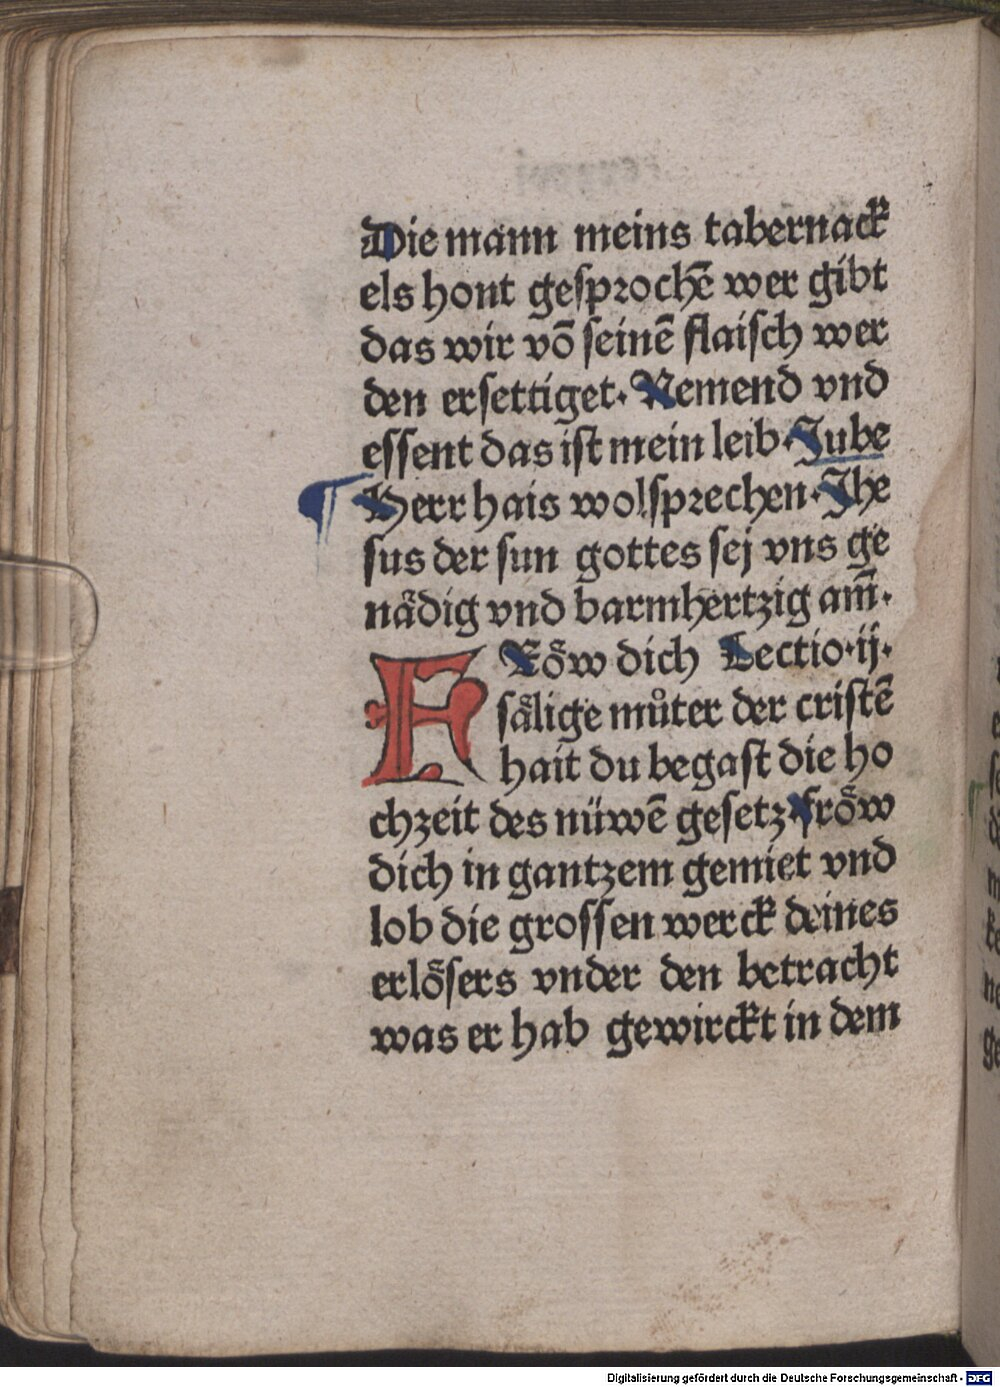 Die mann meins tabernack
els hont geſprochē wer gibt
das wir vō ſeinē flaiſch wer
den erſettiget. Nemend vnd
eſſent das iſt mein leib. Jube
¶ Herr hais wolſprechen. Jhe
ſus der ſun gottes ſej vns ge
nãdig vnd barmhertzig am̄.
FRoͤw dich Lectio.ij.
ſaͤlige muͦter der criſtē
hait du begaſt die ho
chzeit des nüwē geſetz froͤw
dich in gantzem gemiet vnd
lob die groſſen werck deines
erloͤſers vnder den betracht
was er hab gewirckt in dem
Digitalisierung gefördert durch die Deutsche Forschungsgemeinschaft - DFG